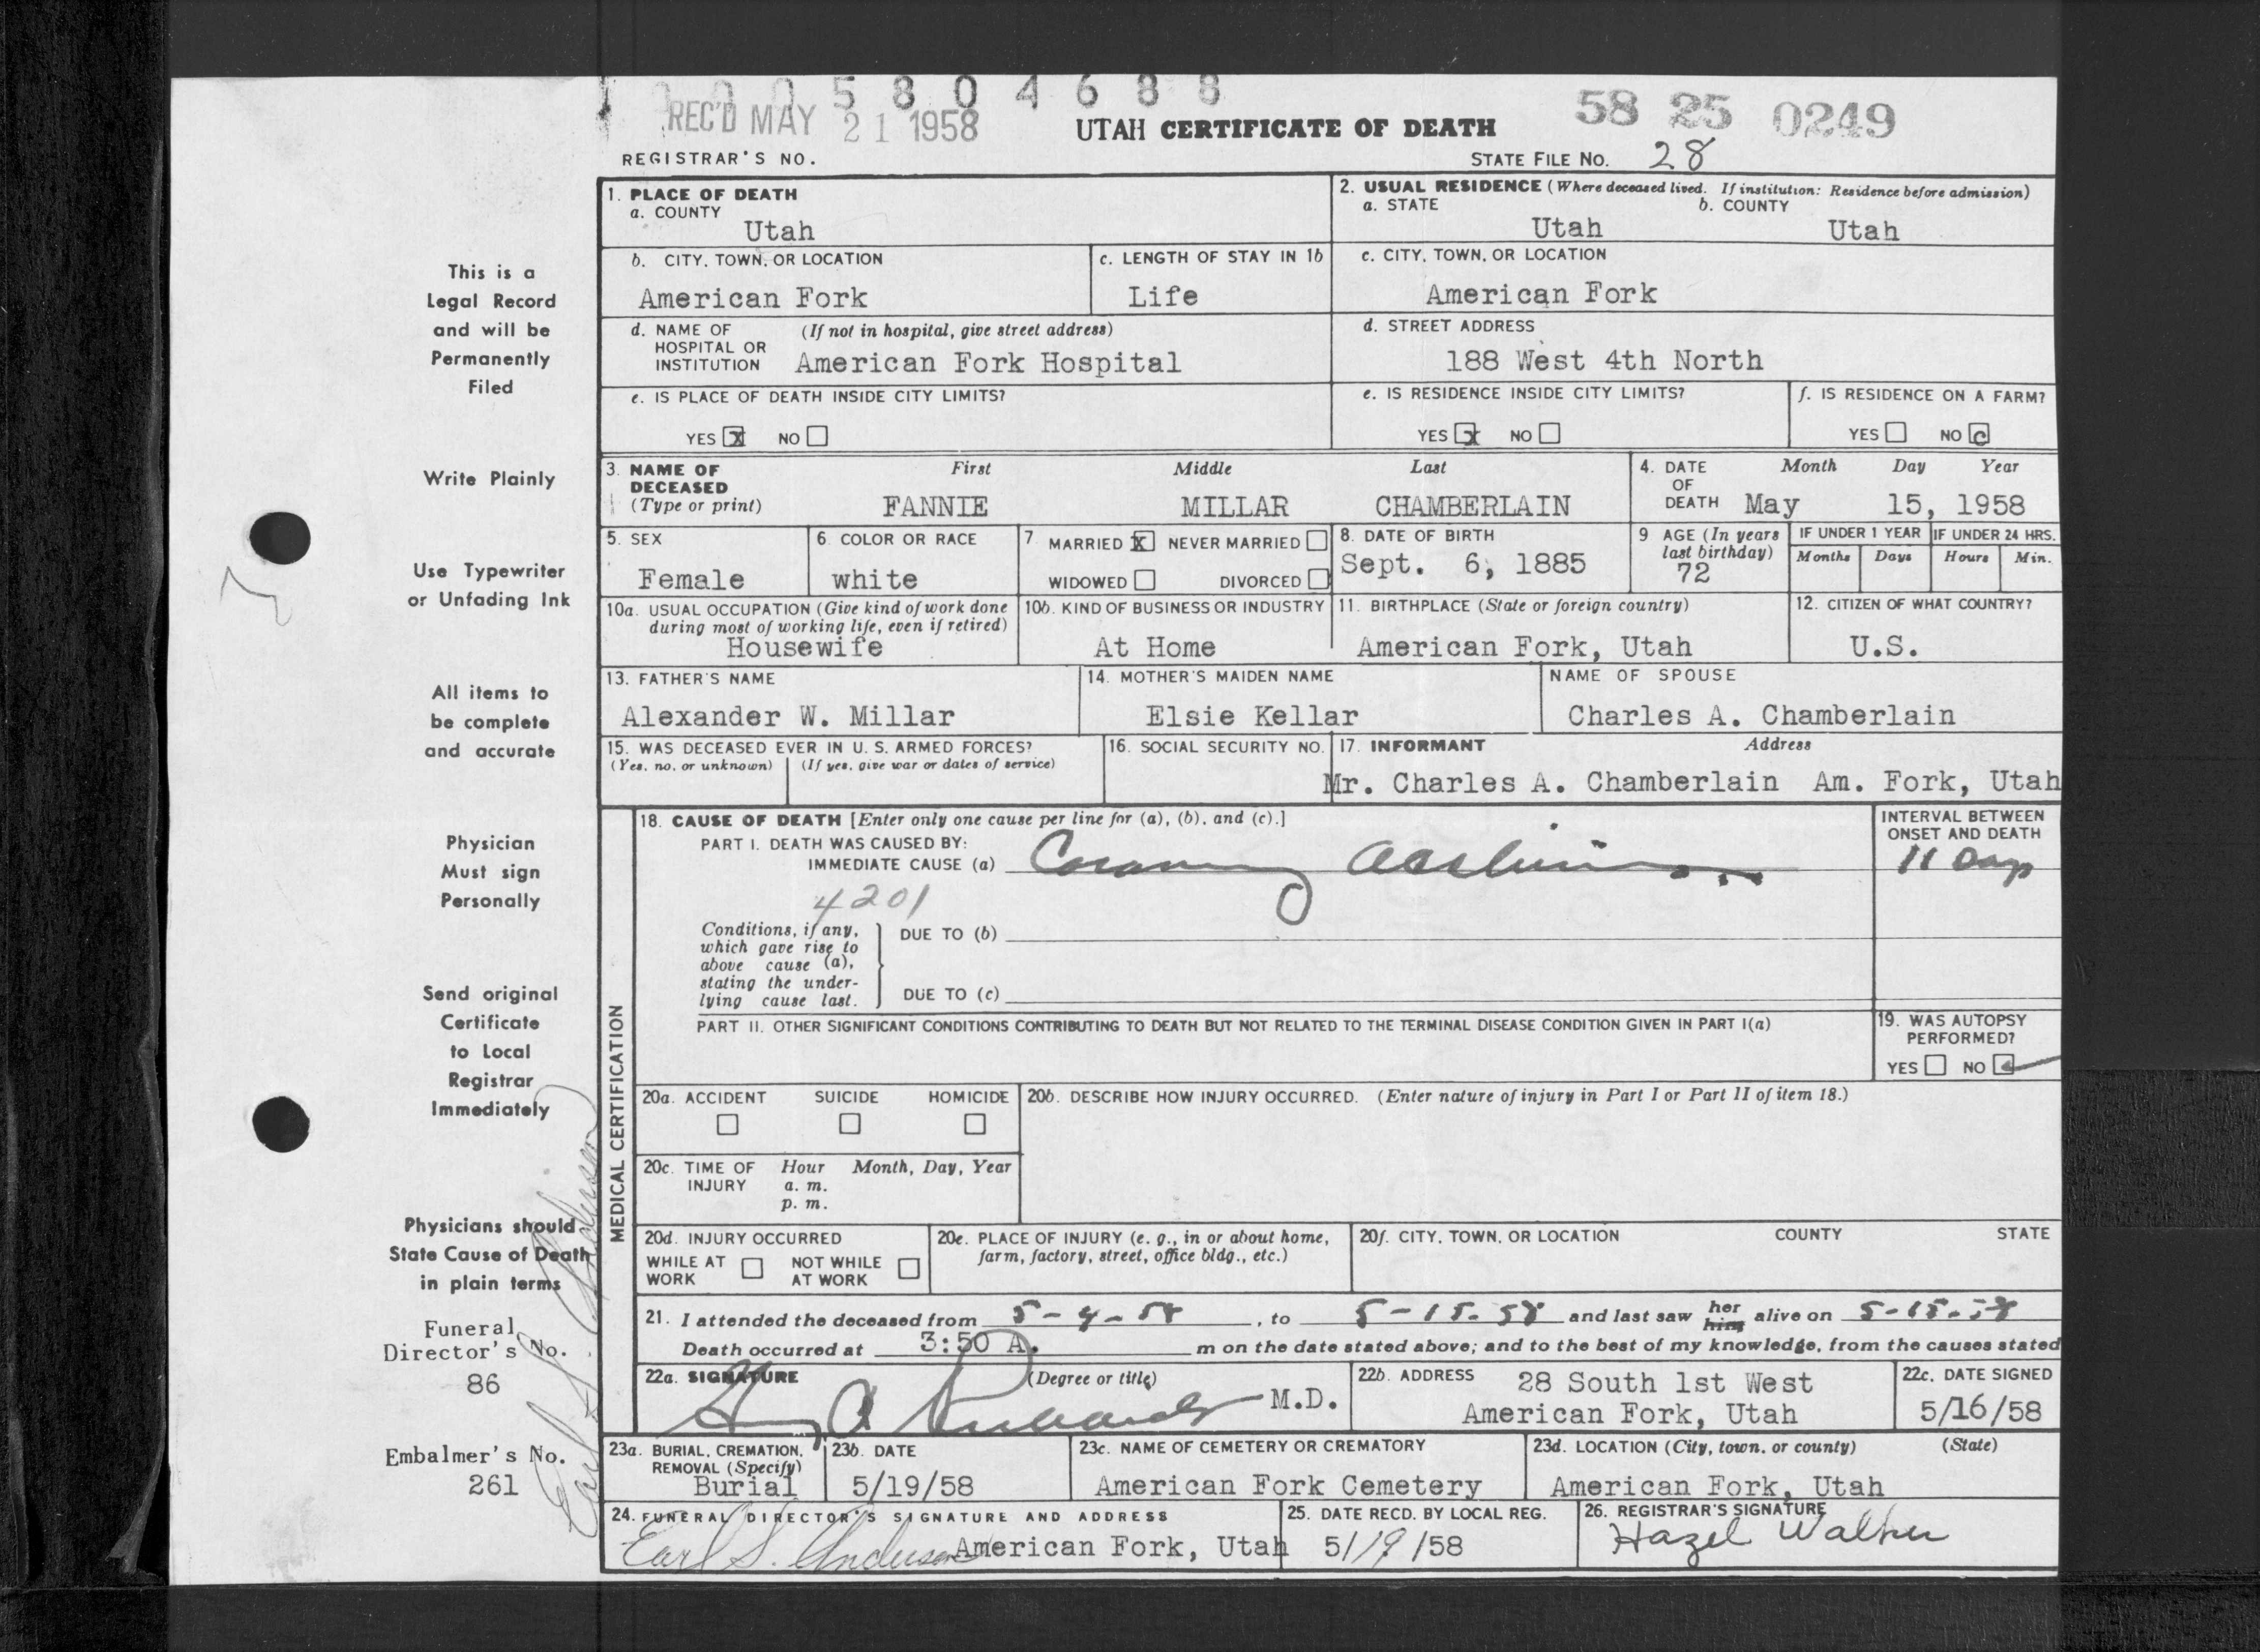 0 0 0 5 8 0 4 6 8 8
REC'D MAY 21 1958
UTAH CERTIFICATE OF DEATH
58 25 0249
REGISTRAR'S NO.
STATE FILE NO. 28
1. PLACE OF DEATH
a. COUNTY
Utah
2. USUAL RESIDENCE (Where deceased lived. If institution: Residence before admission)
a. STATE
b. COUNTY
Utah
Utah
b. CITY, TOWN, OR LOCATION
American Fork
c. LENGTH OF STAY IN 1b
Life
c. CITY, TOWN, OR LOCATION
American Fork
d. NAME OF HOSPITAL OR INSTITUTION
(If not in hospital, give street address)
American Fork Hospital
d. STREET ADDRESS
188 West 4th North
e. IS PLACE OF DEATH INSIDE CITY LIMITS?
YES X NO
e. IS RESIDENCE INSIDE CITY LIMITS?
YES X NO
f. IS RESIDENCE ON A FARM?
YES NO c
3. NAME OF DECEASED
(Type or print)
First Middle Last
FANNIE MILLAR CHAMBERLAIN
4. DATE OF DEATH
Month Day Year
May 15, 1958
5. SEX
Female
6. COLOR OR RACE
white
7. MARRIED X NEVER MARRIED
WIDOWED DIVORCED
8. DATE OF BIRTH
Sept. 6, 1885
9 AGE (In years last birthday)
72
IF UNDER 1 YEAR
Months Days
IF UNDER 24 HRS.
Hours Min.
10a. USUAL OCCUPATION (Give kind of work done during most of working life, even if retired)
Housewife
10b. KIND OF BUSINESS OR INDUSTRY
At Home
11. BIRTHPLACE (State or foreign country)
American Fork, Utah
12. CITIZEN OF WHAT COUNTRY?
U.S.
13. FATHER'S NAME
Alexander W. Millar
14. MOTHER'S MAIDEN NAME
Elsie Kellar
NAME OF SPOUSE
Charles A. Chamberlain
15. WAS DECEASED EVER IN U. S. ARMED FORCES?
(Yes, no, or unknown) (If yes, give war or dates of service)
16. SOCIAL SECURITY NO.
17. INFORMANT Address
Mr. Charles A. Chamberlain Am. Fork, Utah
MEDICAL CERTIFICATION
18. CAUSE OF DEATH [Enter only one cause per line for (a), (b), and (c).]
PART I. DEATH WAS CAUSED BY:
IMMEDIATE CAUSE (a) Coronary
INTERVAL BETWEEN ONSET AND DEATH
11 Days
4201
Conditions, if any, which gave rise to above cause (a), stating the underlying cause last.
DUE TO (b)
DUE TO (c)
PART II. OTHER SIGNIFICANT CONDITIONS CONTRIBUTING TO DEATH BUT NOT RELATED TO THE TERMINAL DISEASE CONDITION GIVEN IN PART I(a)
19. WAS AUTOPSY PERFORMED?
YES NO ✓
20a. ACCIDENT SUICIDE HOMICIDE
20b. DESCRIBE HOW INJURY OCCURRED. (Enter nature of injury in Part I or Part II of item 18.)
20c. TIME OF INJURY
Hour Month, Day, Year
a. m.
p. m.
20d. INJURY OCCURRED
WHILE AT WORK
NOT WHILE AT WORK
20e. PLACE OF INJURY (e. g., in or about home, farm, factory, street, office bldg., etc.)
20f. CITY, TOWN, OR LOCATION COUNTY STATE
21. I attended the deceased from 5-4-58, to 5-15-58 and last saw her him alive on 5-15-58
Death occurred at 3:50 A. m on the date stated above; and to the best of my knowledge, from the causes stated
22a. SIGNATURE (Degree or title)
M.D.
22b. ADDRESS
28 South 1st West
American Fork, Utah
22c. DATE SIGNED
5/16/58
23a. BURIAL, CREMATION, REMOVAL (Specify)
Burial
23b. DATE
5/19/58
23c. NAME OF CEMETERY OR CREMATORY
American Fork Cemetery
23d. LOCATION (City, town, or county) (State)
American Fork, Utah
24. FUNERAL DIRECTOR'S SIGNATURE AND ADDRESS
Earl S. Anderson American Fork, Utah
25. DATE RECD. BY LOCAL REG.
5/19/58
26. REGISTRAR'S SIGNATURE
Hazel Walker
This is a
Legal Record
and will be
Permanently
Filed
Write Plainly
Use Typewriter
or Unfading Ink
All items to
be complete
and accurate
Physician
Must sign
Personally
Send original
Certificate
to Local
Registrar
Immediately
Physicians should
State Cause of Death
in plain terms
Funeral
Director's No.
86
Embalmer's No.
261
Earl S. Anderson